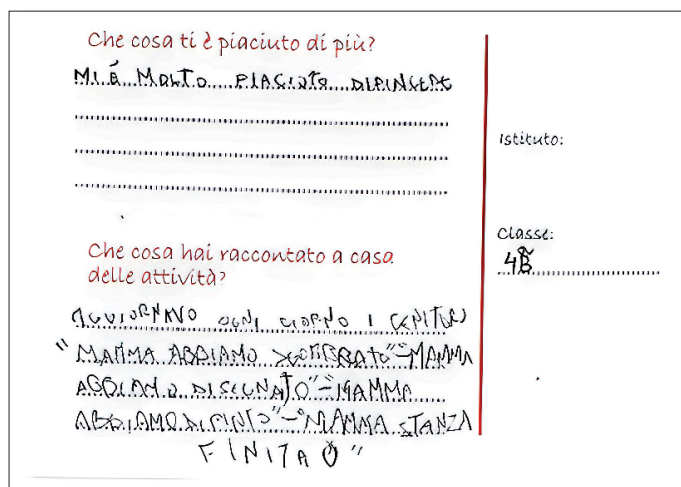 Che cosa ti è piaciuto di più?
MI È MOLTO PIACIUTO DIPINGERE
Istituto:
Classe:
4B
Che cosa hai raccontato a casa
delle attività?
AGGIORNAVO OGNI GIORNO I GENITORI
"MAMMA ABBIAMO SGOMBRATO"-"MAMMA
ABBIAMO DISEGNATO"-"MAMMA
ABBIAMO DIPINTO"-"MAMMA STANZA
FINITA Ö"